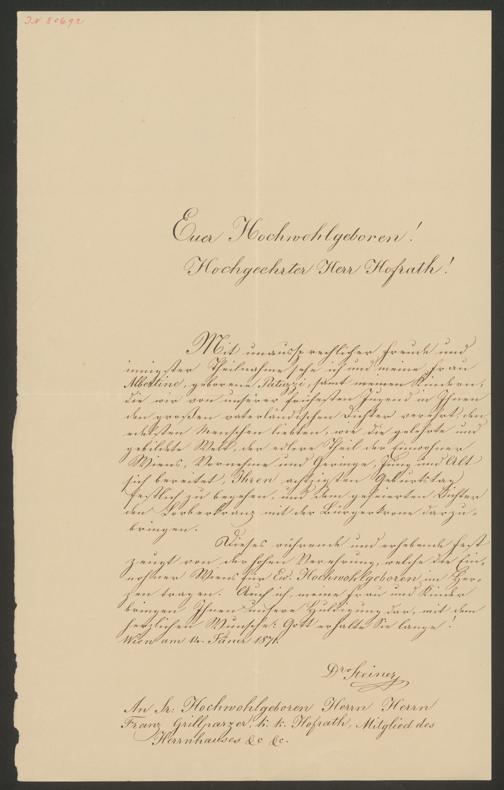 I.N. 80692
Euer Hochwohlgeboren!
Hochgeehrter Herr Hofrath!
Mit unaussprechlicher Freude und
innigster Theilnahme sehe ich und meine Frau
Albertine, geborene Patuzzi, samt meinen Kindern,
die wir von unserer frühesten Jugend in Ihnen
den großen vaterländischen Dichter verehrt, den
edelsten Menschen liebten, wie die gelehrte und
gebildete Welt, der edlere Theil der Einwohner
Wiens, Vornehme und Geringe, Jung und Alt
sich bereitet, Ihren achtzigsten Geburtstag
festlich zu begehen, und dem gefeierten Dichter
den Lorberkranz mit der Bürgerkrone darzu-
bringen.
Dieses rührende und erhebende Fest
zeugt von der hohen Verehrung, welche die Ein-
wohner Wiens für Eu. Hochwohlgeboren im Her-
zen tragen. Auch ich, meine Frau und Kinder
bringen Ihnen unsere Huldigung dar, mit dem
herzlichen Wunsche: Gott erhalte Sie lange!
Wien am 14. Jäner 1871.
Dr Steiner
An Sr. Hochwohlgeboren Herrn Herrn
Franz Grillparzer, k. k. Hofrath, Mitglied des
Herrnhauses &c &c.